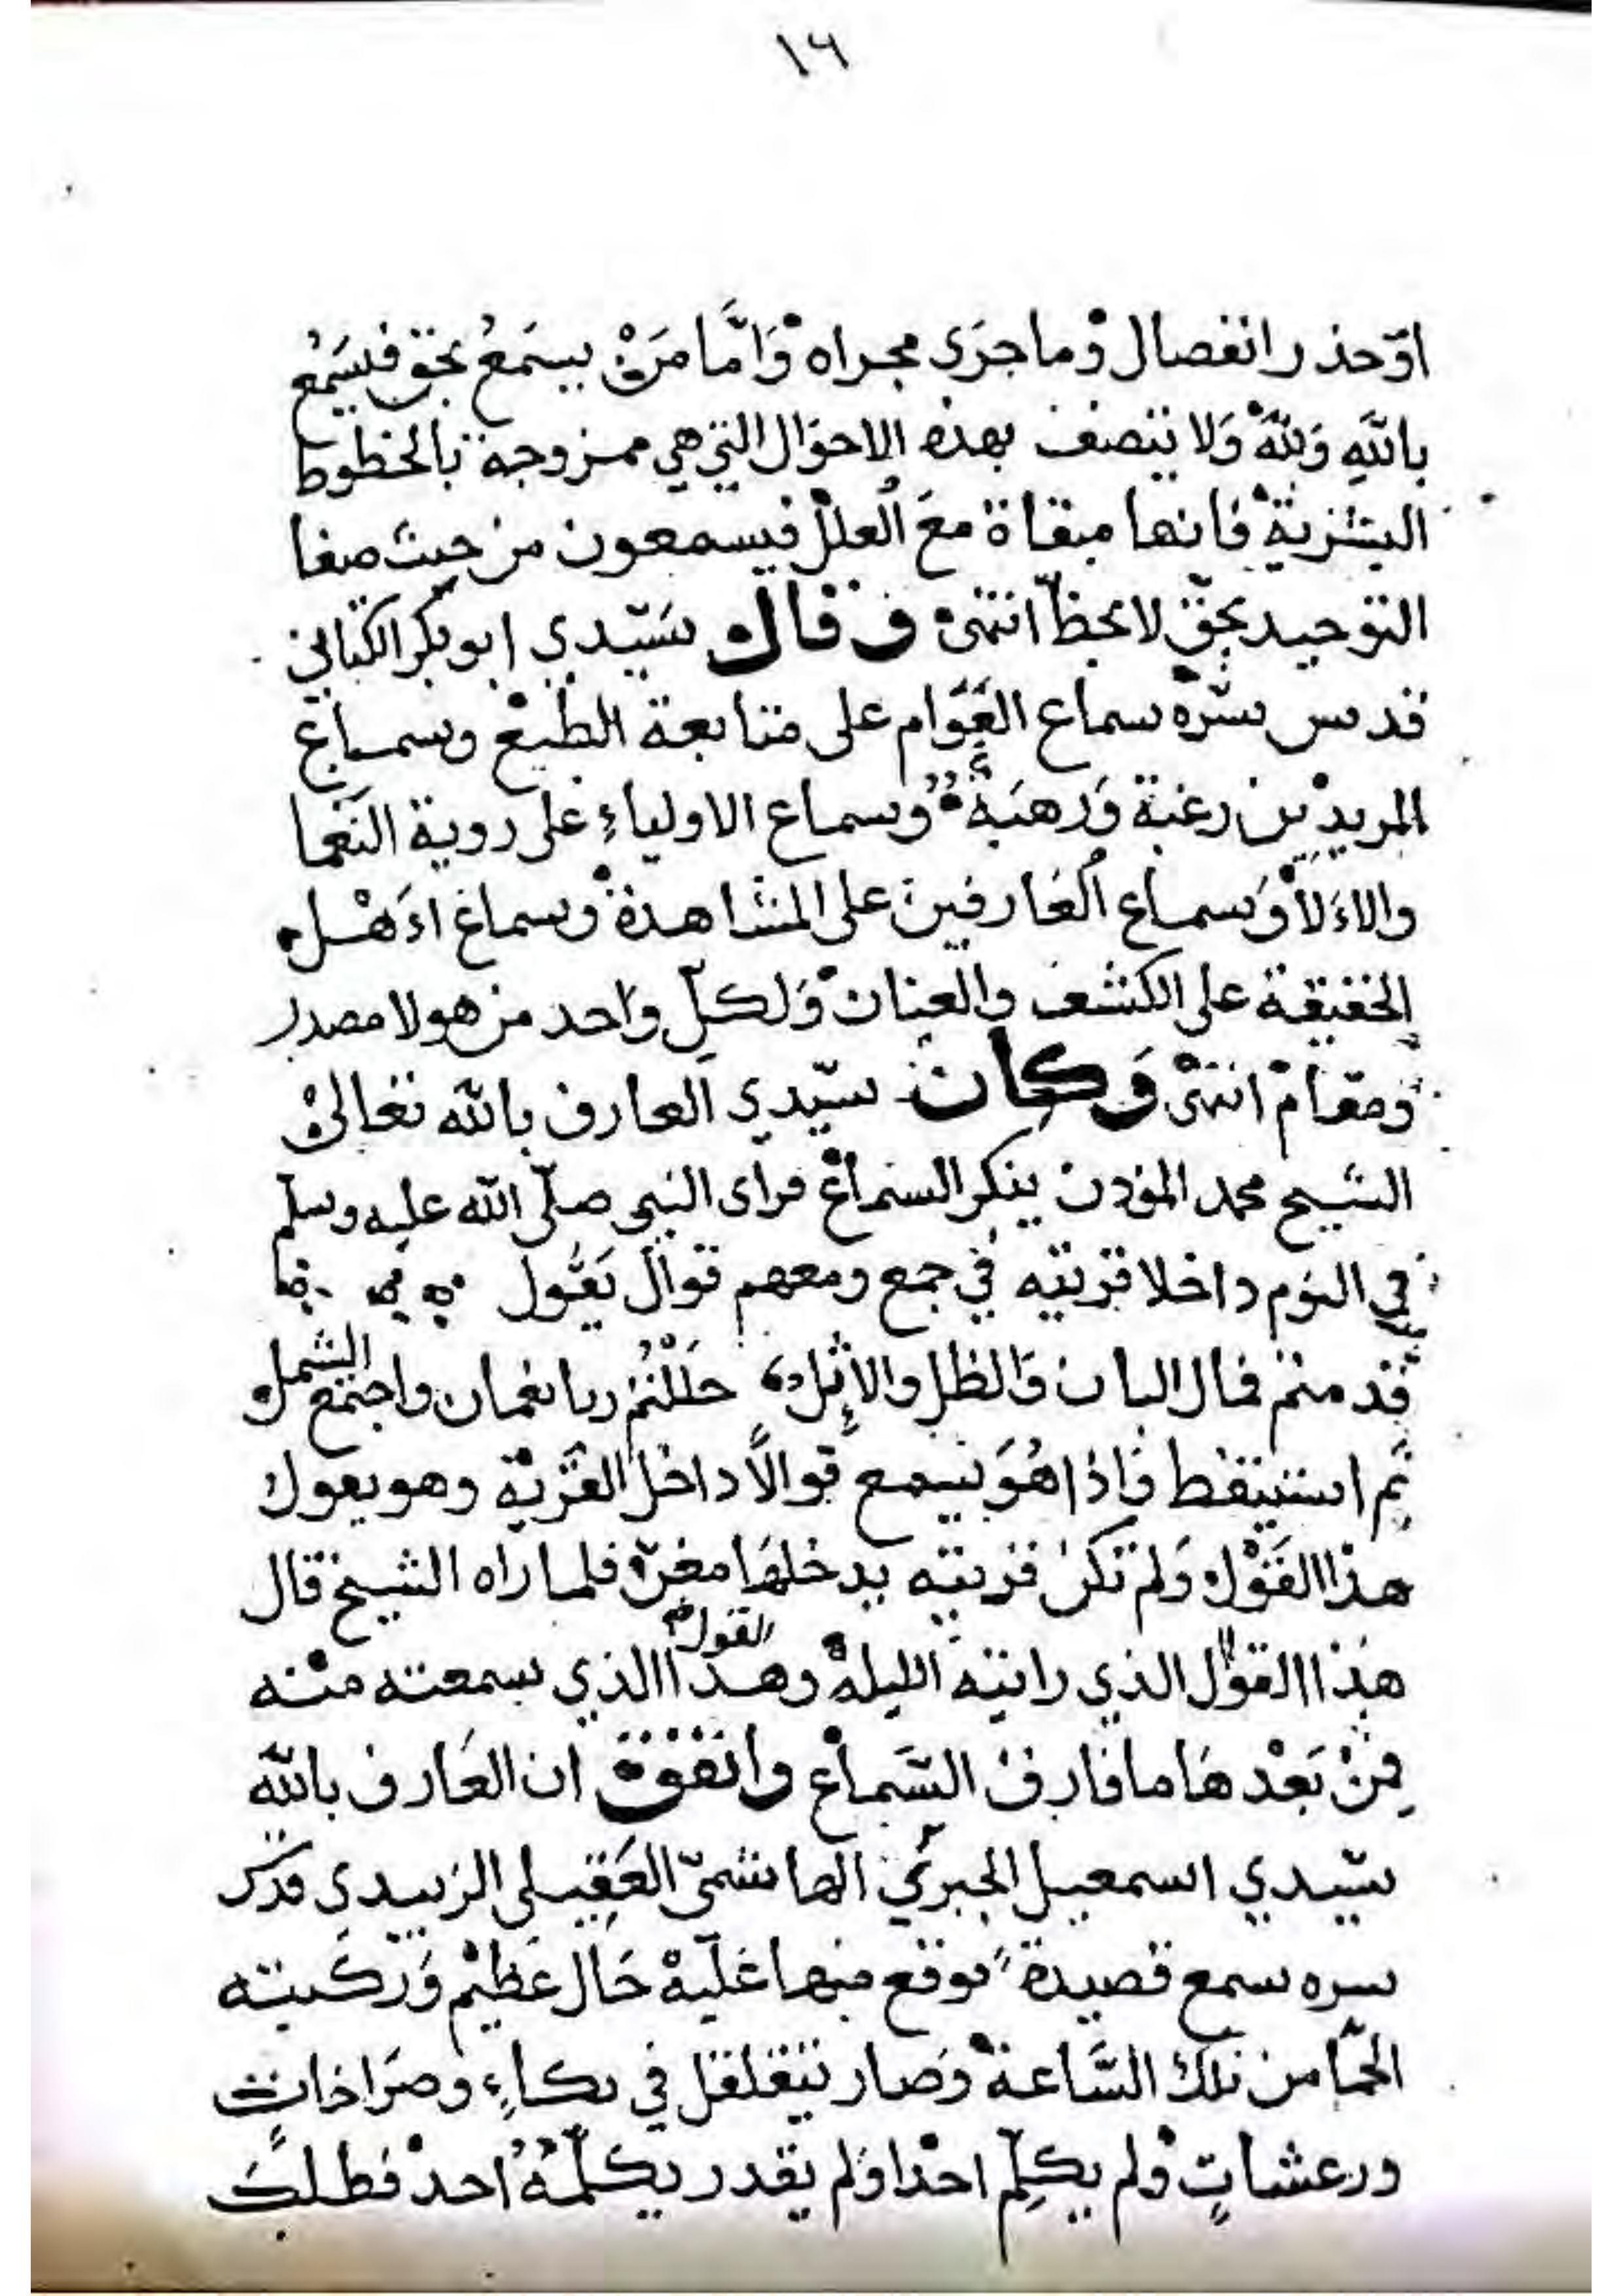 ١٦
او حذر انفصال وما جرَى مجراه وَامَّا مَنْ يسمَعُ بحق فيسَمْعُ
باللهِ وَللهِ وَلا يتصف بهذه الاحوَال التي هي ممزوجة بالحظوظ
البشرية فانها مبقاة معَ العلل فيسمعون من حيث صفا
التوحيد بحقّ لا بحظّ انتهى وقال سَيّدي ابو بكر الكتاني
قدس سّره سماع العَوَام على متابعة الطبْع وسماع
المريدين رغبة وَرهبَة وسماع الاولياءِ على روية النَعْما
والاءَلا وَسماع العَارفين على المشاهدة وسماع اهْل
الحقيقة على الكشف والعيان وَلكلّ وَاحد من هولا مصدر
ومقام انتهى وَكان سيّدي العارف بالله تعَالى
الشيخ محمد الموذن ينكر السماع فراى النبي صلّى الله عليه وسلم
في النوم داخلا قريته في جمع ومعهم قوال يَقُول
قدمتم فمال البان وَالظل والاثِل حَلَلْتُمْ ربا نعمان واجتمع الشمل
ثم استيقظ فاذا هُوَ يسمع قوالاً داخل القَرْية وهو يقول
هذا القَوْل وَلم تكن قريته يدخلهَا مغن فلما راه الشيخ قال
هذا القوال الذي رايته الليلة وهذا القول الذي سمعته منه
فمنْ بَعْدهَا ما فارق السَّماع واتفق ان العَارف بالله
سيّدي اسمعيل الجبرتي الهاشميّ العَقِيلي الزبيدي قدس
سره سمع قصيدة فوقع منها عَليْه حَال عَظيْم وَركبته
الحمّا من تلك السَّاعة وَصار يتقلقل في بكاءٍ وصرَاخاتٍ
ورعشاتٍ ولم يكلّم احدا وَلم يقدر يكلّمهُ احد فطلبَ